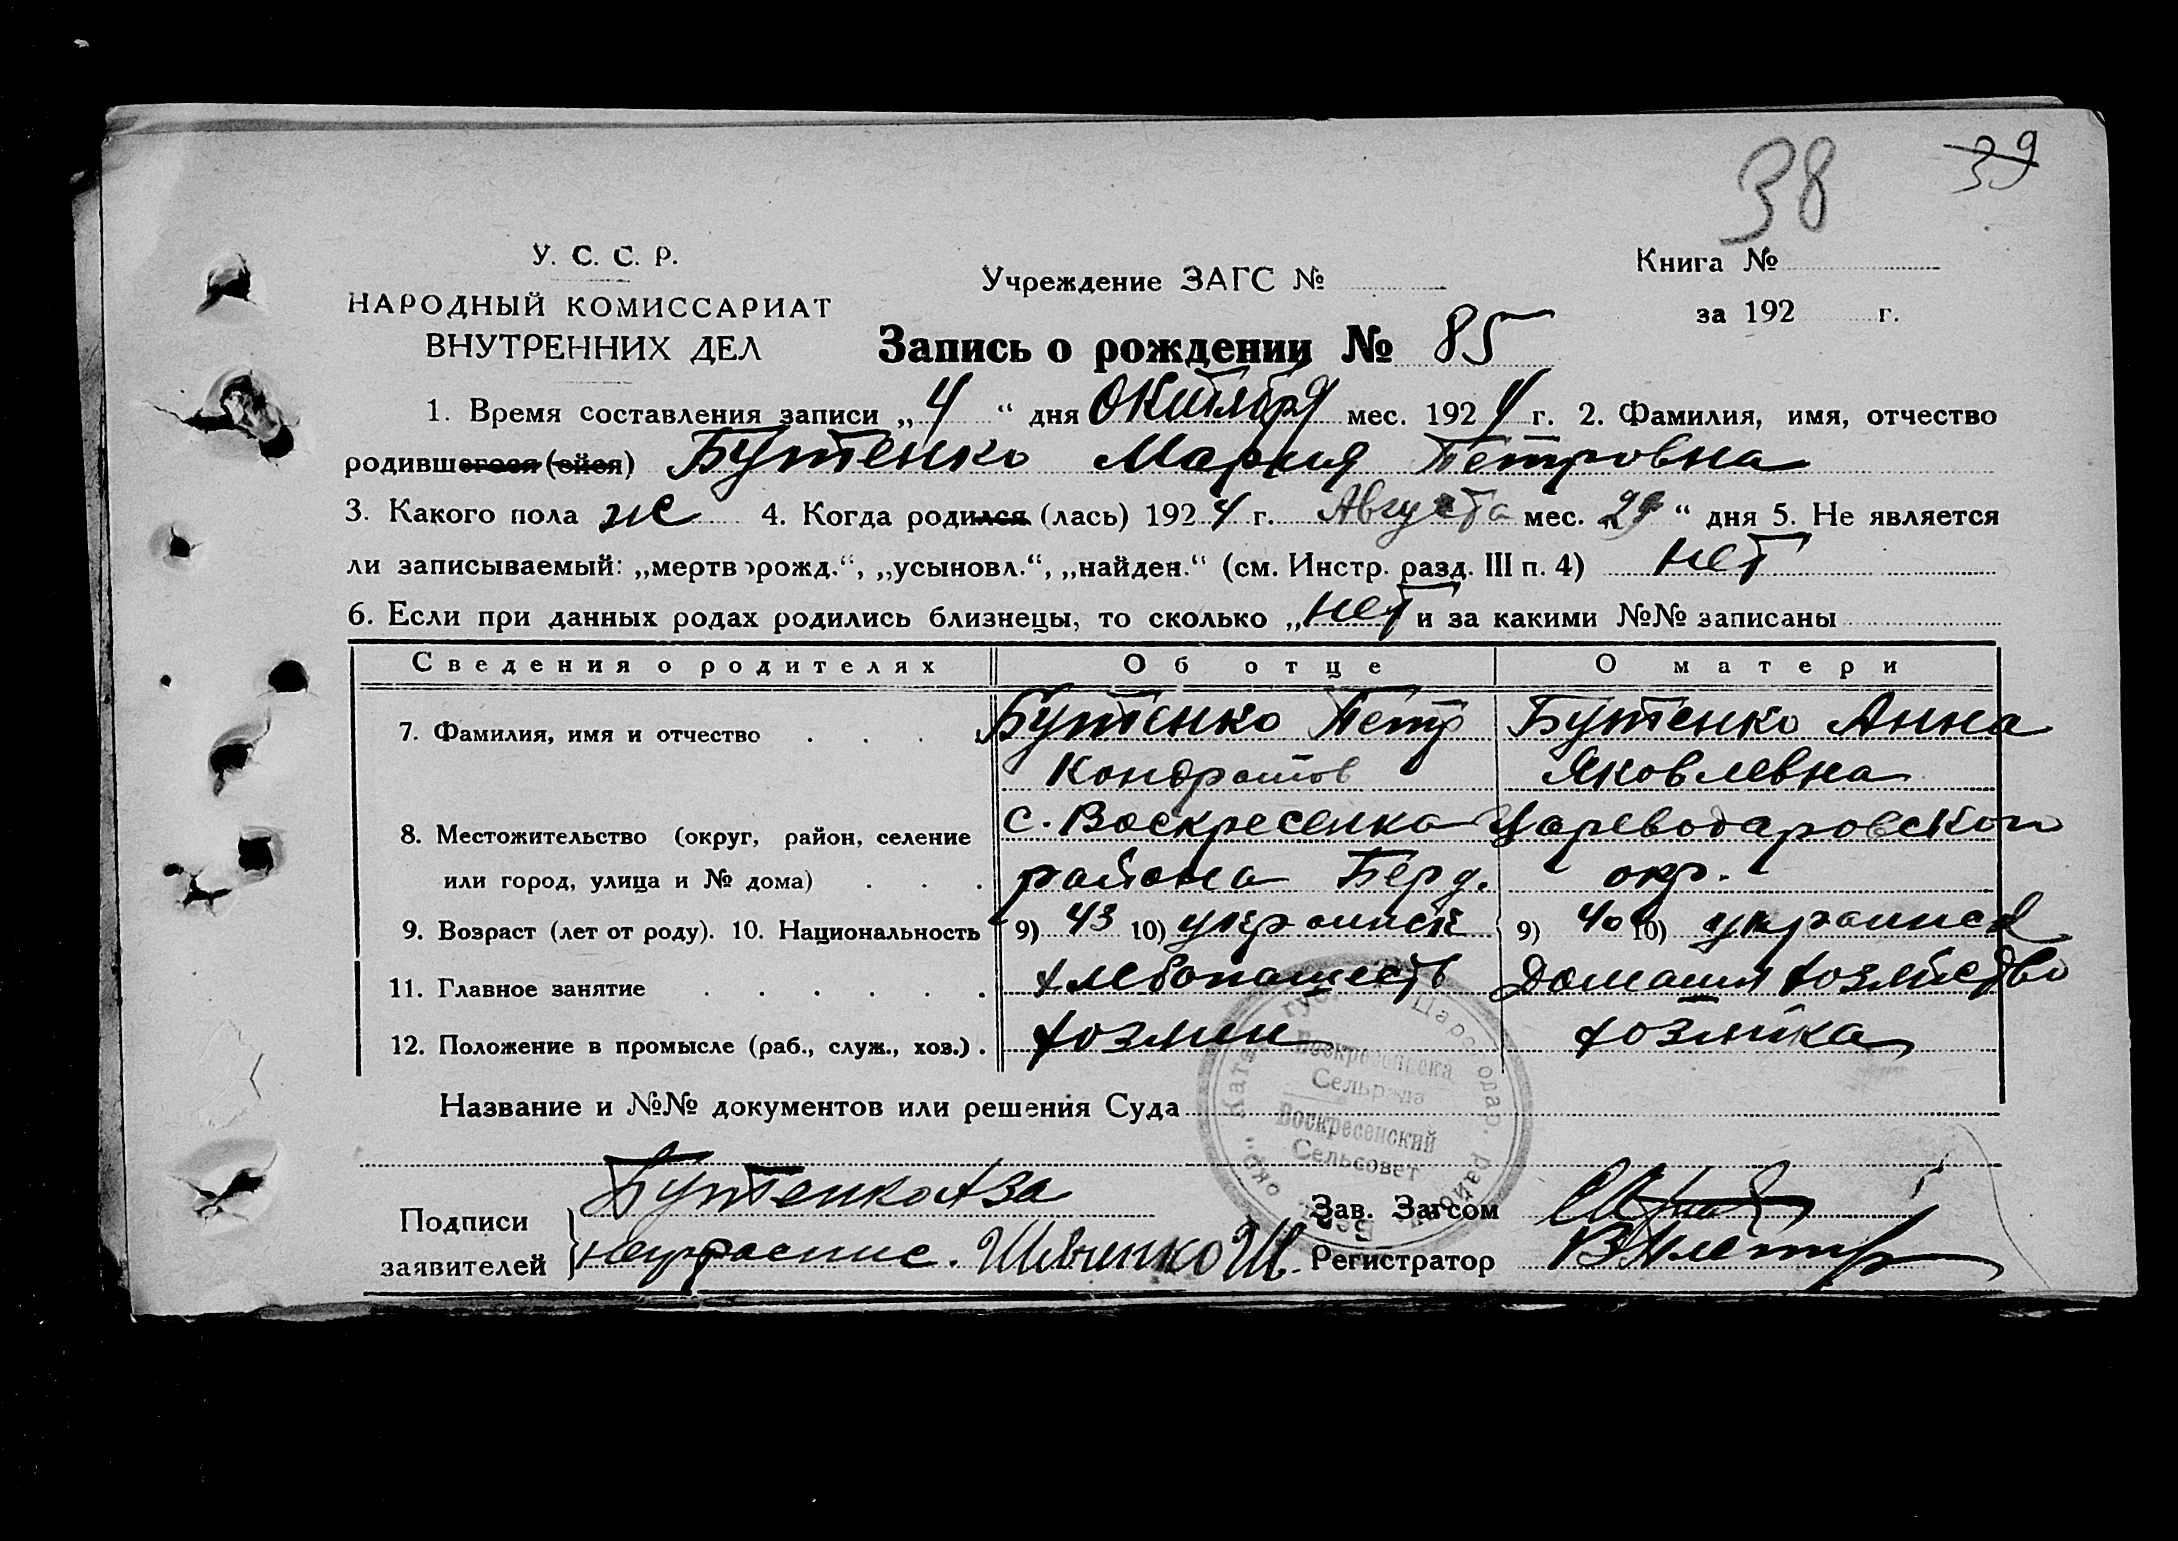 38 39
У. С. С. Р.
НАРОДНЫЙ КОМИССАРИАТ
ВНУТРЕННИХ ДЕЛ
Учреждение ЗАГС №
Книга №
за 192 г.
Запись о рождении № 85
1. Время составления записи „4“ дня октября мес. 1924 г. 2. Фамилия, имя, отчество
родившегося (ейся) Бутенко Мария Петровна
3. Какого пола ж 4. Когда родился (лась) 1924 г. Августа мес. „29“ дня 5. Не является
ли записываемый: „мертворожд.“, „усыновл.“, „найден.“ (см. Инстр. разд. III п. 4) нет
6. Если при данных родах родились близнецы, то сколько „нет и за какими №№ записаны
Сведения о родителях Об отце О матери
7. Фамилия, имя и отчество . . . . Бутенко Петр Бутенко Анна
Кондратов Яковлевна
8. Местожительство (округ, район, селение с. Воскресенка Цареводаровского
или город, улица и № дома) . . . района Берд. окр.
9. Возраст (лет от роду). 10. Национальность 9) 43 10) украинск 9) 40 10) украинск
11. Главное занятие . . . . . . хлебопашеств Домашня хозяйство
12. Положение в промысле (раб., служ., хоз.) . хозяин хозяйка
Название и №№ документов или решения Суда
Воскресенска
Сельрада
Воскресенский
Сельсовет
Подписи Бутенко Аза Зав. Загсом
заявителей неграспис. Шевченко Ш. Регистратор